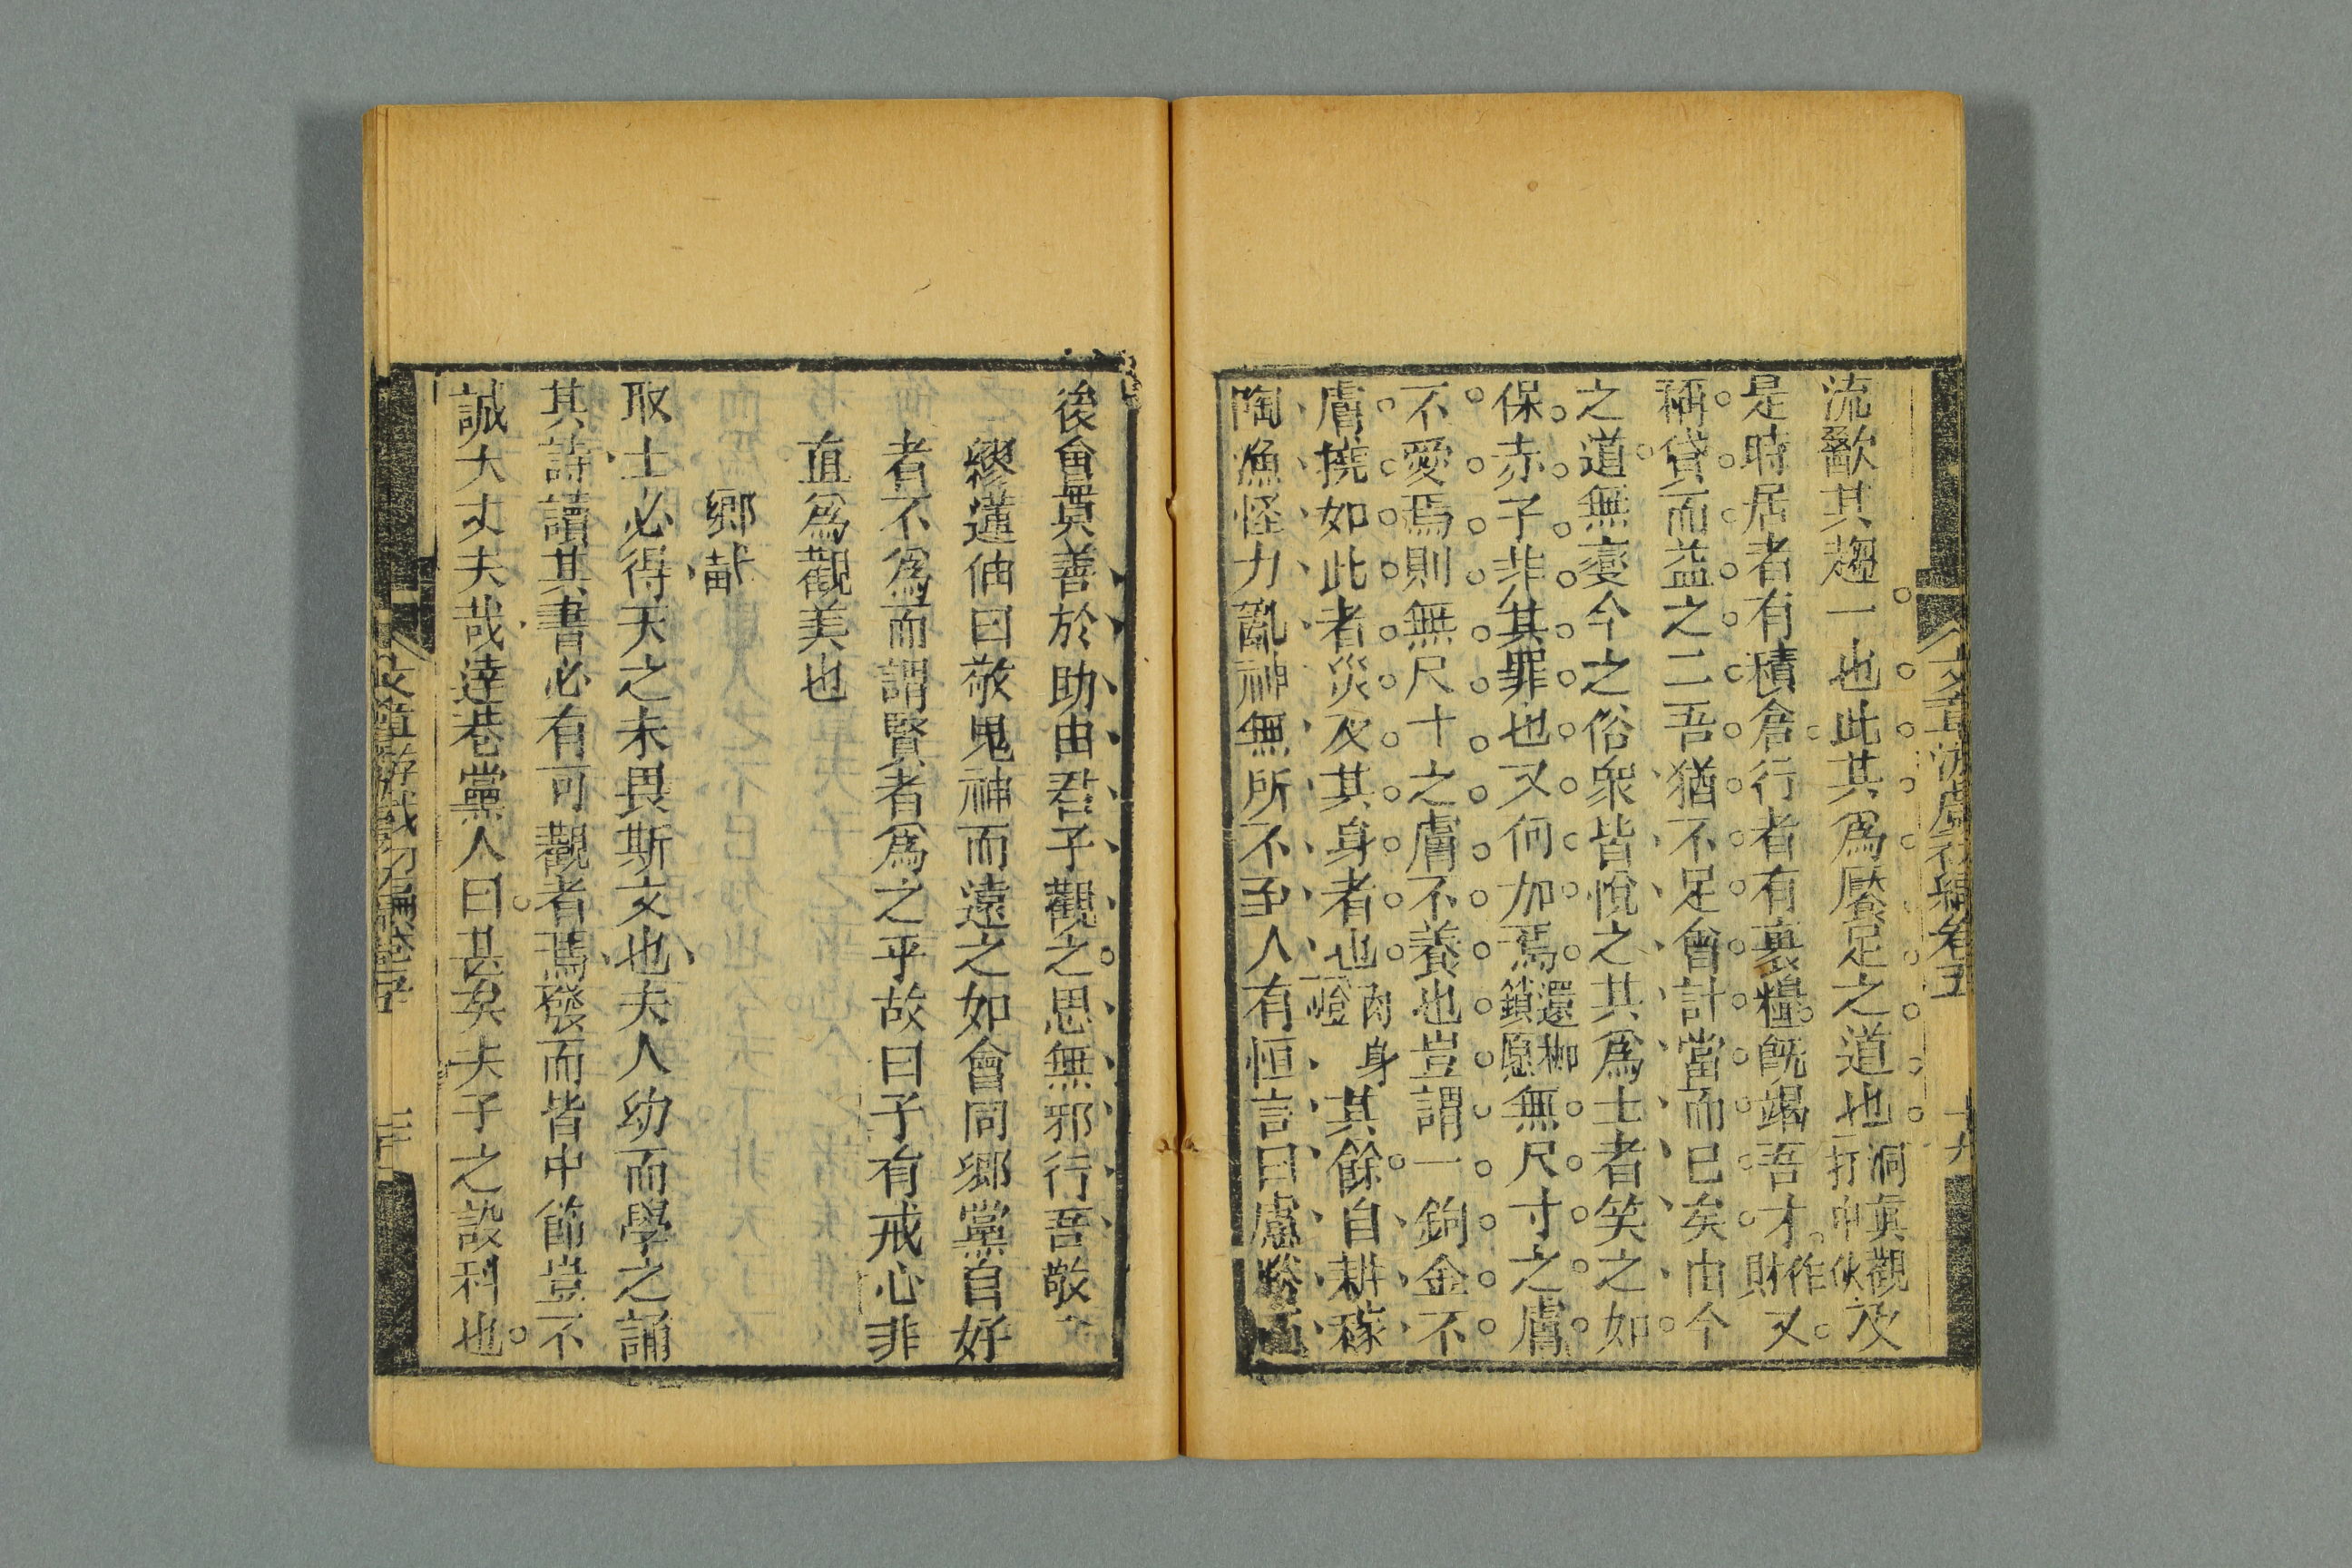 流歠其趨一也此其爲饜足之道也洞眞觀一打中伙及
是時居者有積倉行者有裹糧旣竭吾才作財又
稱貸而益之二吾猶不足會計當而已矣由今
之道無變今之俗衆皆悅之其爲士者笑之如
保赤子非其罪也又何加焉還枷鎖愿無尺寸之膚
不愛焉則無尺寸之膚不養也豈謂一鉤金不
膚撓如此者災及其身者也肉身燈其餘自耕稼
陶漁怪力亂神無所不至人有恒言曰
文章游戲初編卷五
十九
後會眞善於助由君子觀之思無邪行吾敬
繆蓮仙曰敬鬼神而遠之如會同鄉黨自好
者不爲而謂賢者爲之乎故曰子有戒心非
直爲觀美也
鄉試
取士必得天之未畏斯文也夫人幼而學之誦
其詩讀其書必有可觀者焉發而皆中節豈不
誠大丈夫哉達巷黨人曰甚矣夫子之設科也
文章游戲初編卷五
二十